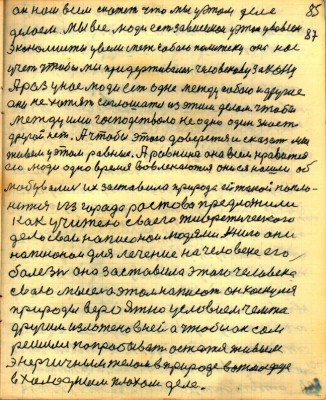 он нам всем скажет что мы уэтом деле 85
делаем. Мы все люди есть зависимое уэтом условии 87
экономисты увели меж собою политеку оне нас
учет чтобы мы придерживали человекову закону
А раз унас людей есть одне между собою наружие
они не хотят соглашаться из этим делом. чтобы
между ими господствовало не одно один знает
другой нет. А чтобы этого доверется и сказать мы
живем уэтом равные. А равнина она всем нравится
его люди одно время вовлекаются они ся нашли об
их заставила природа ей такой
из города ростова предложили
как учителю своего теоретического
дело свои написаной людями книго они
написаном для лечение на человека его
болезн она заставила этого человека
свою мысел о этом написат он коснулся
природы вероятно условием чемто
другим изложено в ней а чтобы он сам
решили попробывать остатся живым
энергичным телом в природе в атмосфере
в холодным плохом деле.